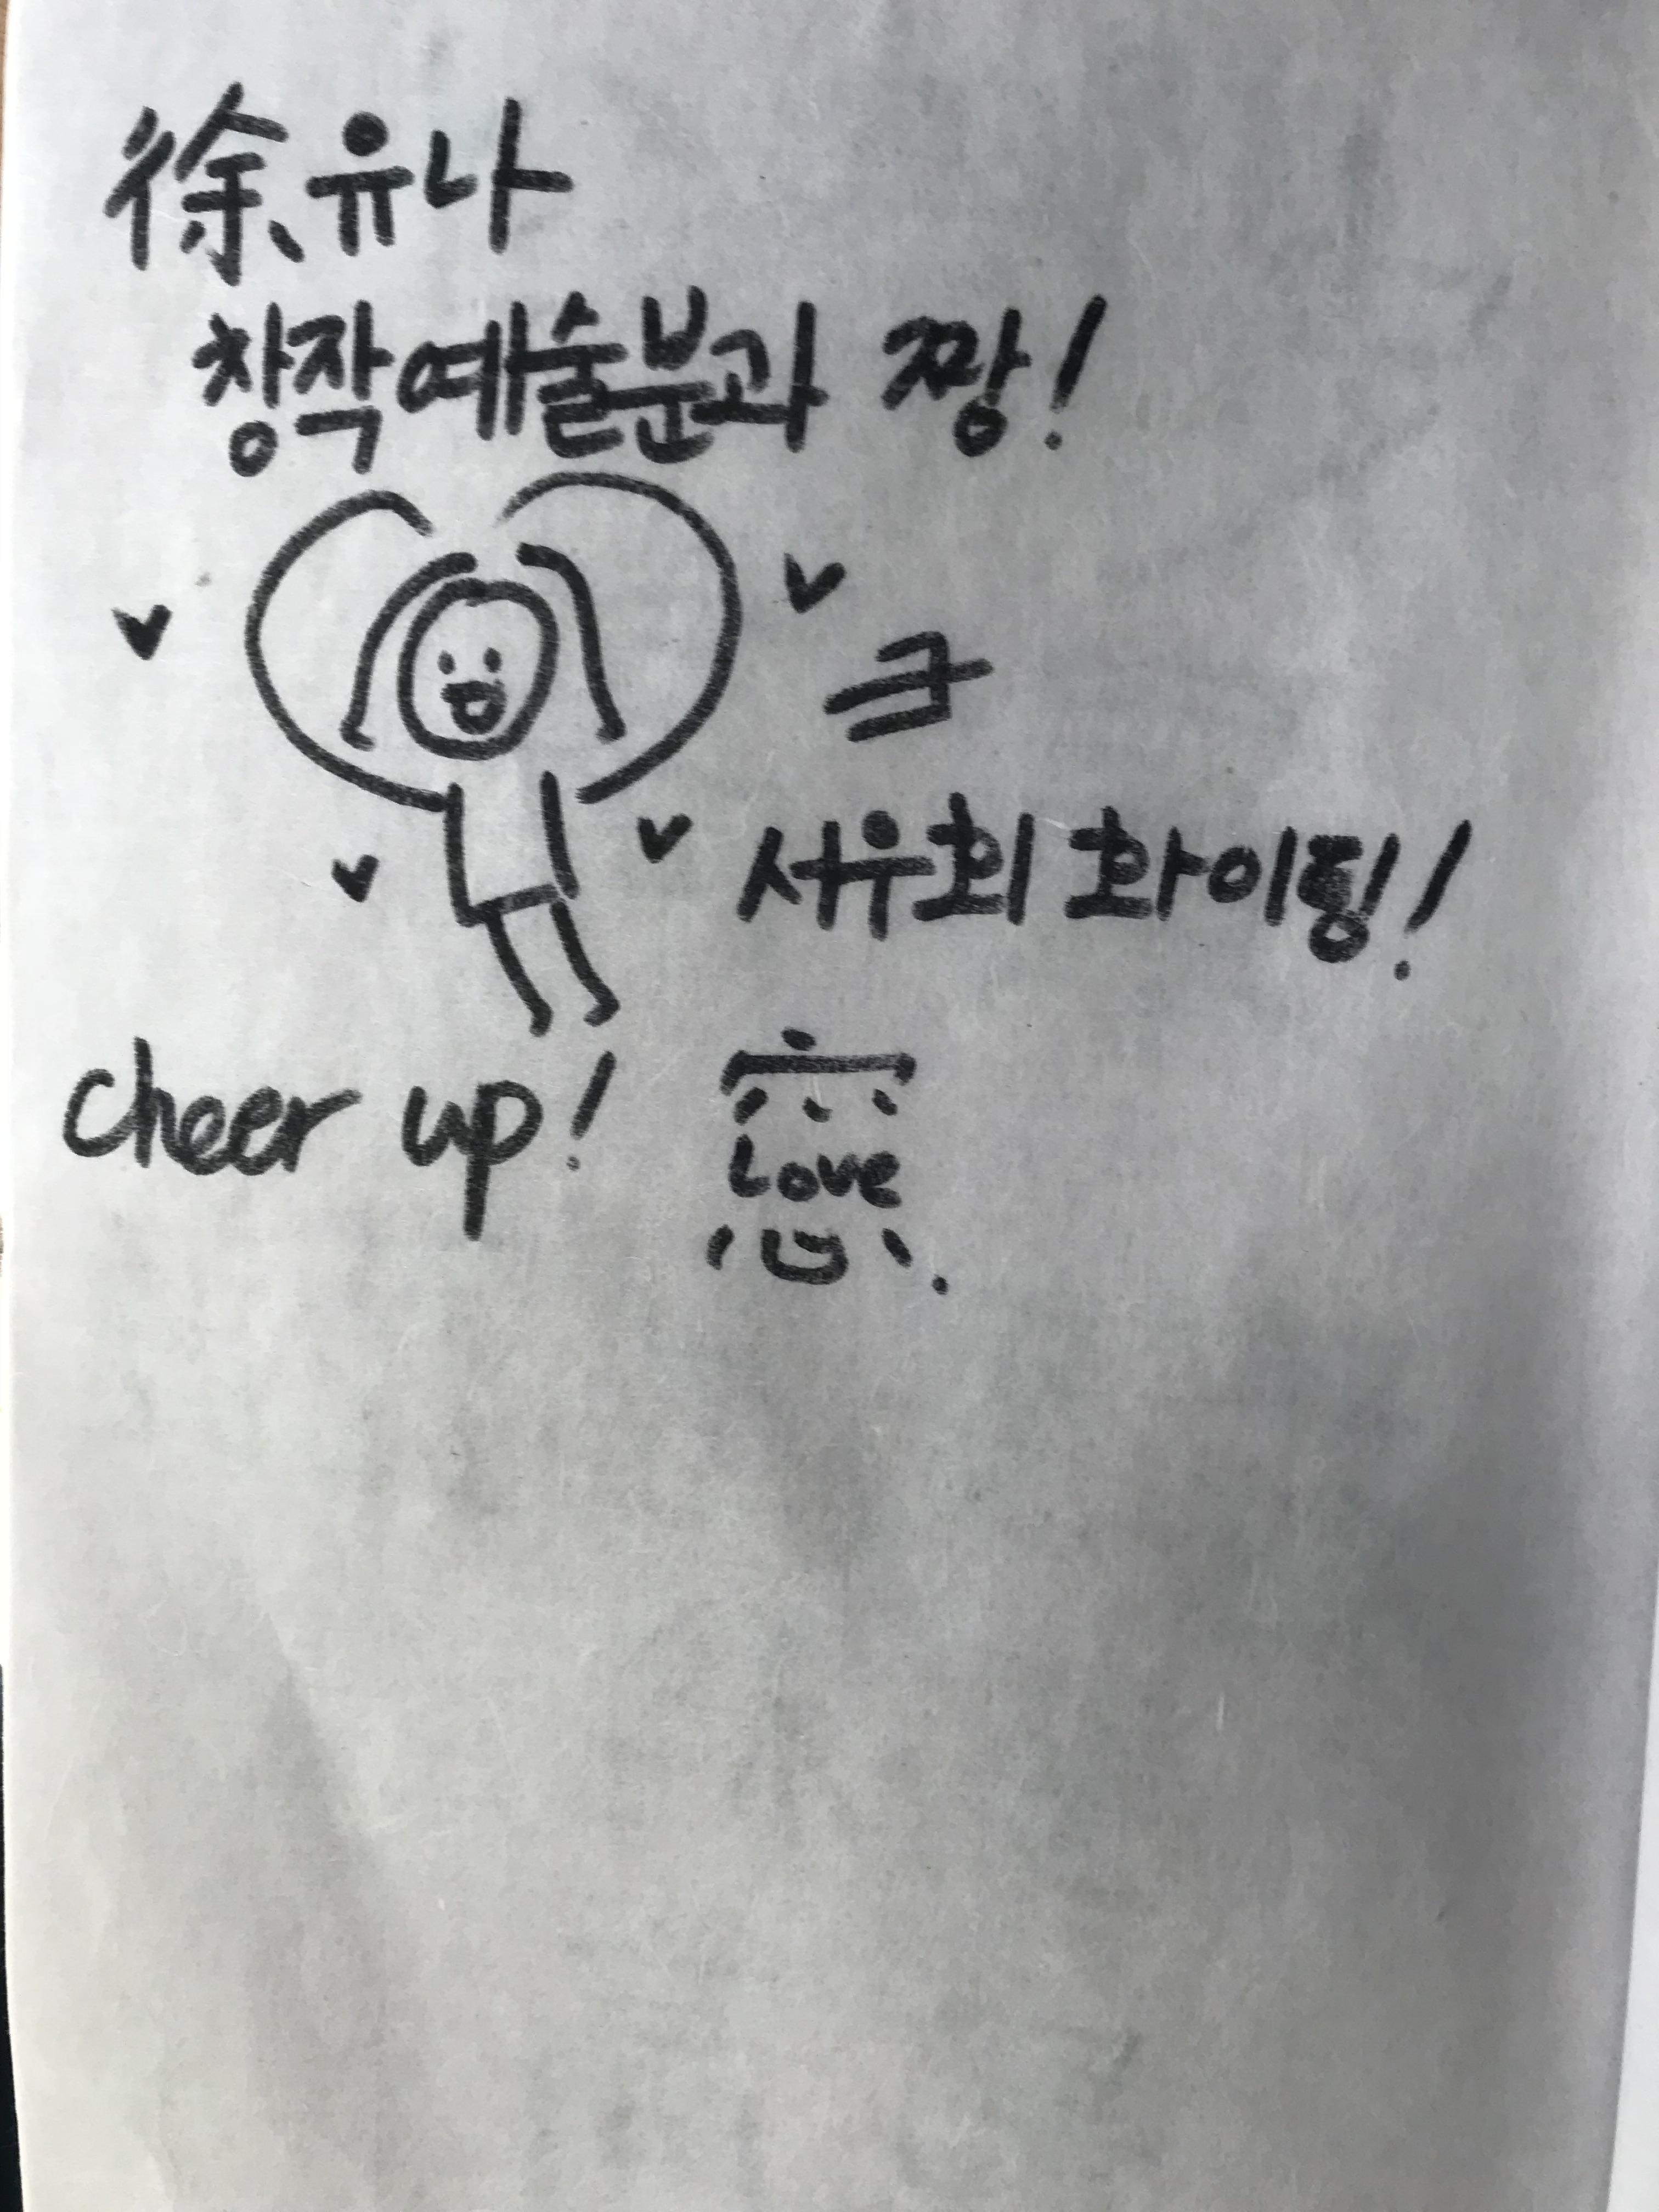 徐、유나
창작예술분과 짱!
크
서우회 화이팅!
cheer up!
Love